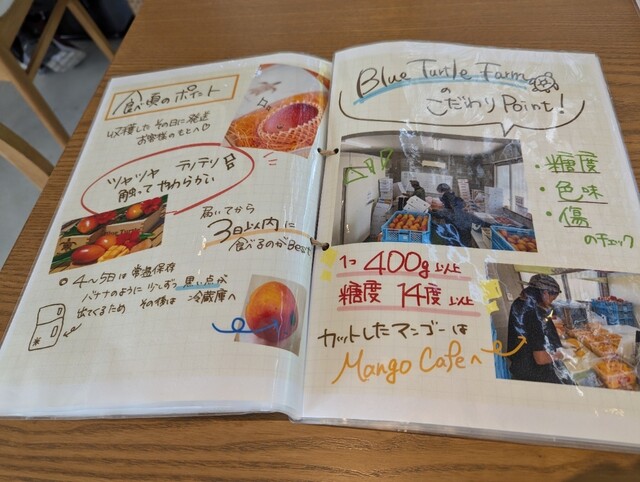 食べ頃のポイント
収穫したその日に発送
お客様のもとへ♡
ツヤツヤ テリテリ
触って やわらかい
届いてから
3日以内に
食べるのがBest
4〜5日は常温保存
バナナのように少しずつ黒い点が
出てくるため その後は 冷蔵庫へ
Blue Turtle Farm
の
こだわり Point!
・糖度
・色味
・傷
のチェック
1コ 400g以上
糖度 14度以上
カットしたマンゴーは
Mango Cafeへ